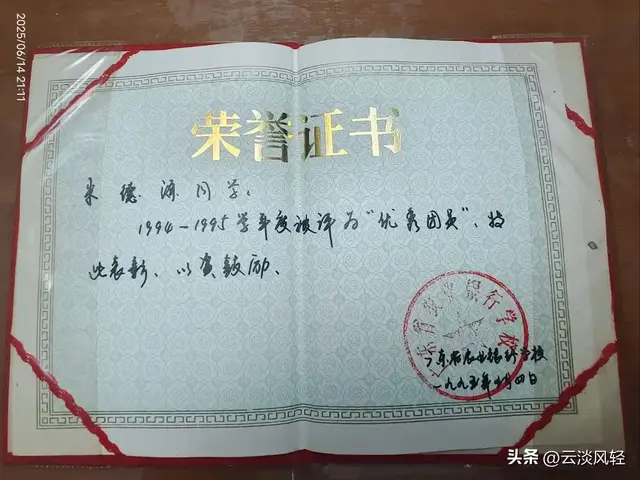 2025/06/14 21:11
荣誉证书
德 同学:
1994-1995学年度被评为“优秀团员”,特
此表彰、以资鼓励、
广东省农业银行学校
广东省农业银行学校
一九九五年 月四日
头条 @云淡风轻